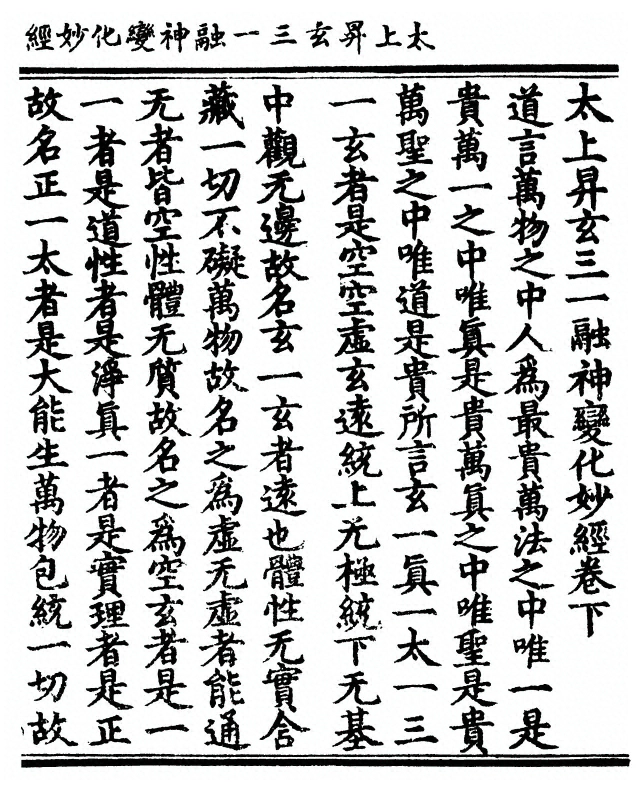 太上昇玄三一融神變化妙經
太上昇玄三一融神變化妙經卷下
道言萬物之中人爲最貴萬法之中唯一是
貴萬一之中唯眞是貴萬眞之中唯聖是貴
萬聖之中唯道是貴所言玄一眞一太一三
一玄者是空空虛玄遠統上无極統下无基
中觀无邊故名玄一玄者遠也體性无實含
藏一切不礙萬物故名之爲虛无虛者能通
无者皆空性體无質故名之爲空玄者是一
一者是道性者是淨眞一者是實理者是正
故名正一太者是大能生萬物包統一切故